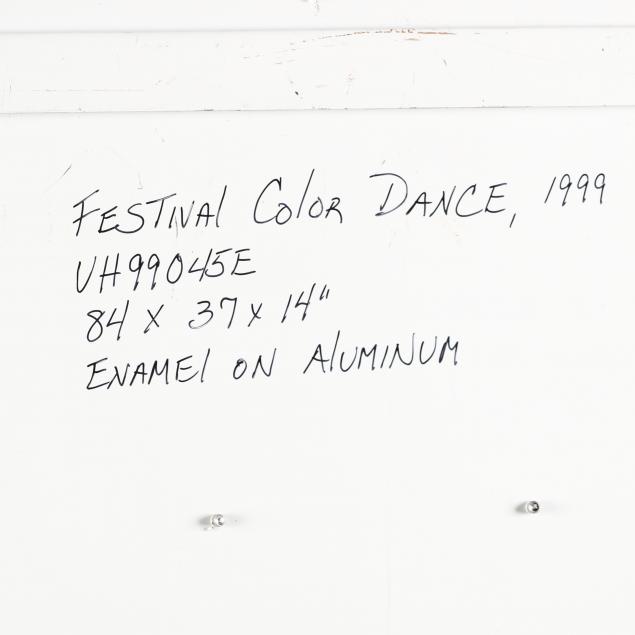 FESTIVAL COLOR DANCE, 1999
VH99045E
84 x 37 x 14"
ENAMEL ON ALUMINUM